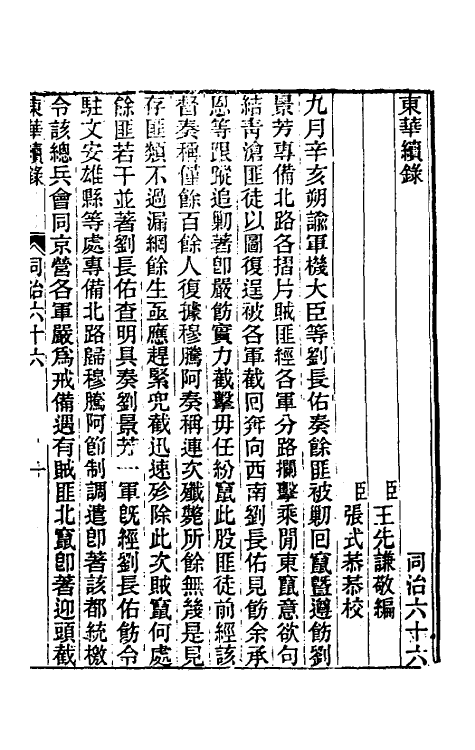 東華續錄　同治六十六
臣王先謙敬編
臣張式恭恭校
九月辛亥朔諭軍機大臣等劉長佑奏餘匪被剿回竄曁遵飭劉
景芳專備北路各摺片賊匪經各軍分路攔擊乘閒東竄意欲句
結靑滄匪徒以圖復逞被各軍截回奔向西南劉長佑見飭余承
恩等跟蹤追剿著卽嚴飭實力截擊毋任紛竄此股匪徒前經該
督奏稱僅餘百餘人復據穆騰阿奏稱連次殲斃所餘無幾是見
存匪類不過漏網餘生亟應趕緊兜截迅速殄除此次賊竄何處
餘匪若干並著劉長佑查明具奏劉景芳一軍旣經劉長佑飭令
駐文安雄縣等處專備北路歸穆騰阿節制調遣卽著該都統檄
令該總兵會同京營各軍嚴爲戒備遇有賊匪北竄卽著迎頭截
東華續錄　同治六十六　一